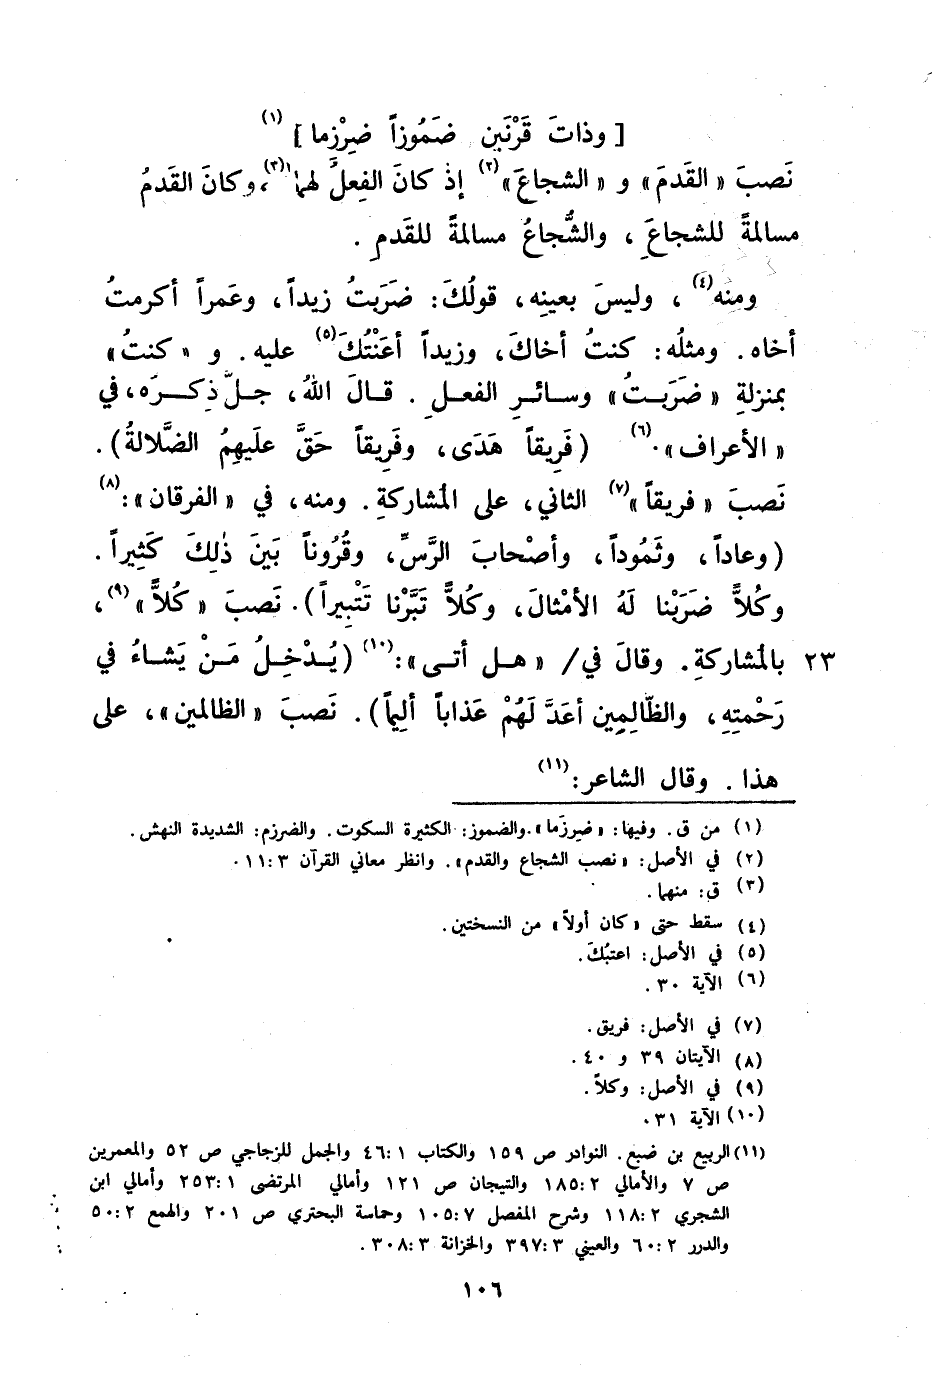 [ وذاتَ قَرْنَينِ ضَمُوزاً ضِرْزِما ] (١)
نَصبَ « القَدمَ » و « الشجاعَ » (٢) إذْ كانَ الفِعلُ لهما (٣)، وكانَ القَدمُ
مسالمةً للشجاعَِ ، والشُّجاعُ مسالمةً للقَدمِ .
ومنه (٤) ، وليسَ بعينِه، قولُكَ: ضَرَبتُ زيداً، وعَمراً أكرمتُ
أخاه. ومثلُه: كنتُ أخاكَ، وزيداً أعَنْتُكَ (٥) عليه. و « كنتُ »
بمنزلةِ « ضَرَبتُ » وسائرِ الفعلِ . قالَ اللهُ، جلَّ ذِكرَه، في
« الأعراف ». (٦) (فَرِيقاً هَدَى، وفَرِيقاً حَقَّ علَيهِمُ الضَّلالةُ).
نَصبَ « فريقاً » (٧) الثاني، على المُشاركةِ. ومنه، في « الفرقان »: (٨)
(وعاداً، وثَمُوداً، وأصْحابَ الرَّسِّ، وقُرُوناً بَينَ ذٰلِكَ كَثِيراً.
وكُلاًّ ضَرَبْنا لَهُ الأمْثالَ، وكُلاًّ تَبَّرْنا تَتْبِيراً). نَصبَ « كُلاًّ » (٩)،
٢٣ بالمُشاركةِ. وقالَ في/ « هل أتى »: (١٠) (يُدْخِلُ مَنْ يَشاءُ في
رَحْمتِهِ، والظّالِمِين أعَدَّ لَهُمْ عَذاباً أليماً). نَصبَ « الظالمين »، على
هذا . وقال الشاعر: (١١)
(١) من ق. وفيها: « ضيرزَما ». والضموز: الكثيرة السكوت. والضرزم: الشديدة النهش.
(٢) في الأصل: « نصب الشجاع والقدم ». وانظر معاني القرآن ٣: ١١.
(٣) ق: منهما.
(٤) سقط حتى « كان أولاً » من النسختين.
(٥) في الأصل: اعتبُكَ.
(٦) الآية ٣٠ .
(٧) في الأصل: فريق.
(٨) الآيتان ٣٩ و ٤٠ .
(٩) في الأصل: وكلاً.
(١٠) الآية ٣١.
(١١) الربيع بن ضبع. النوادر ص ١٥٩ والكتاب ١: ٤٦ والجمل للزجاجي ص ٥٢ والمعمرين
ص ٧ والأمالي ٢: ١٨٥ والتيجان ص ١٢١ وأمالي المرتضى ١: ٢٥٣ وأمالي ابن
الشجري ٢: ١١٨ وشرح المفصل ٧: ١٠٥ وحماسة البحتري ص ٢٠١ والهمع ٢: ٥٠
والدرر ٢: ٦٠ والعيني ٣: ٣٩٧ والخزانة ٣: ٣٠٨ .
١٠٦